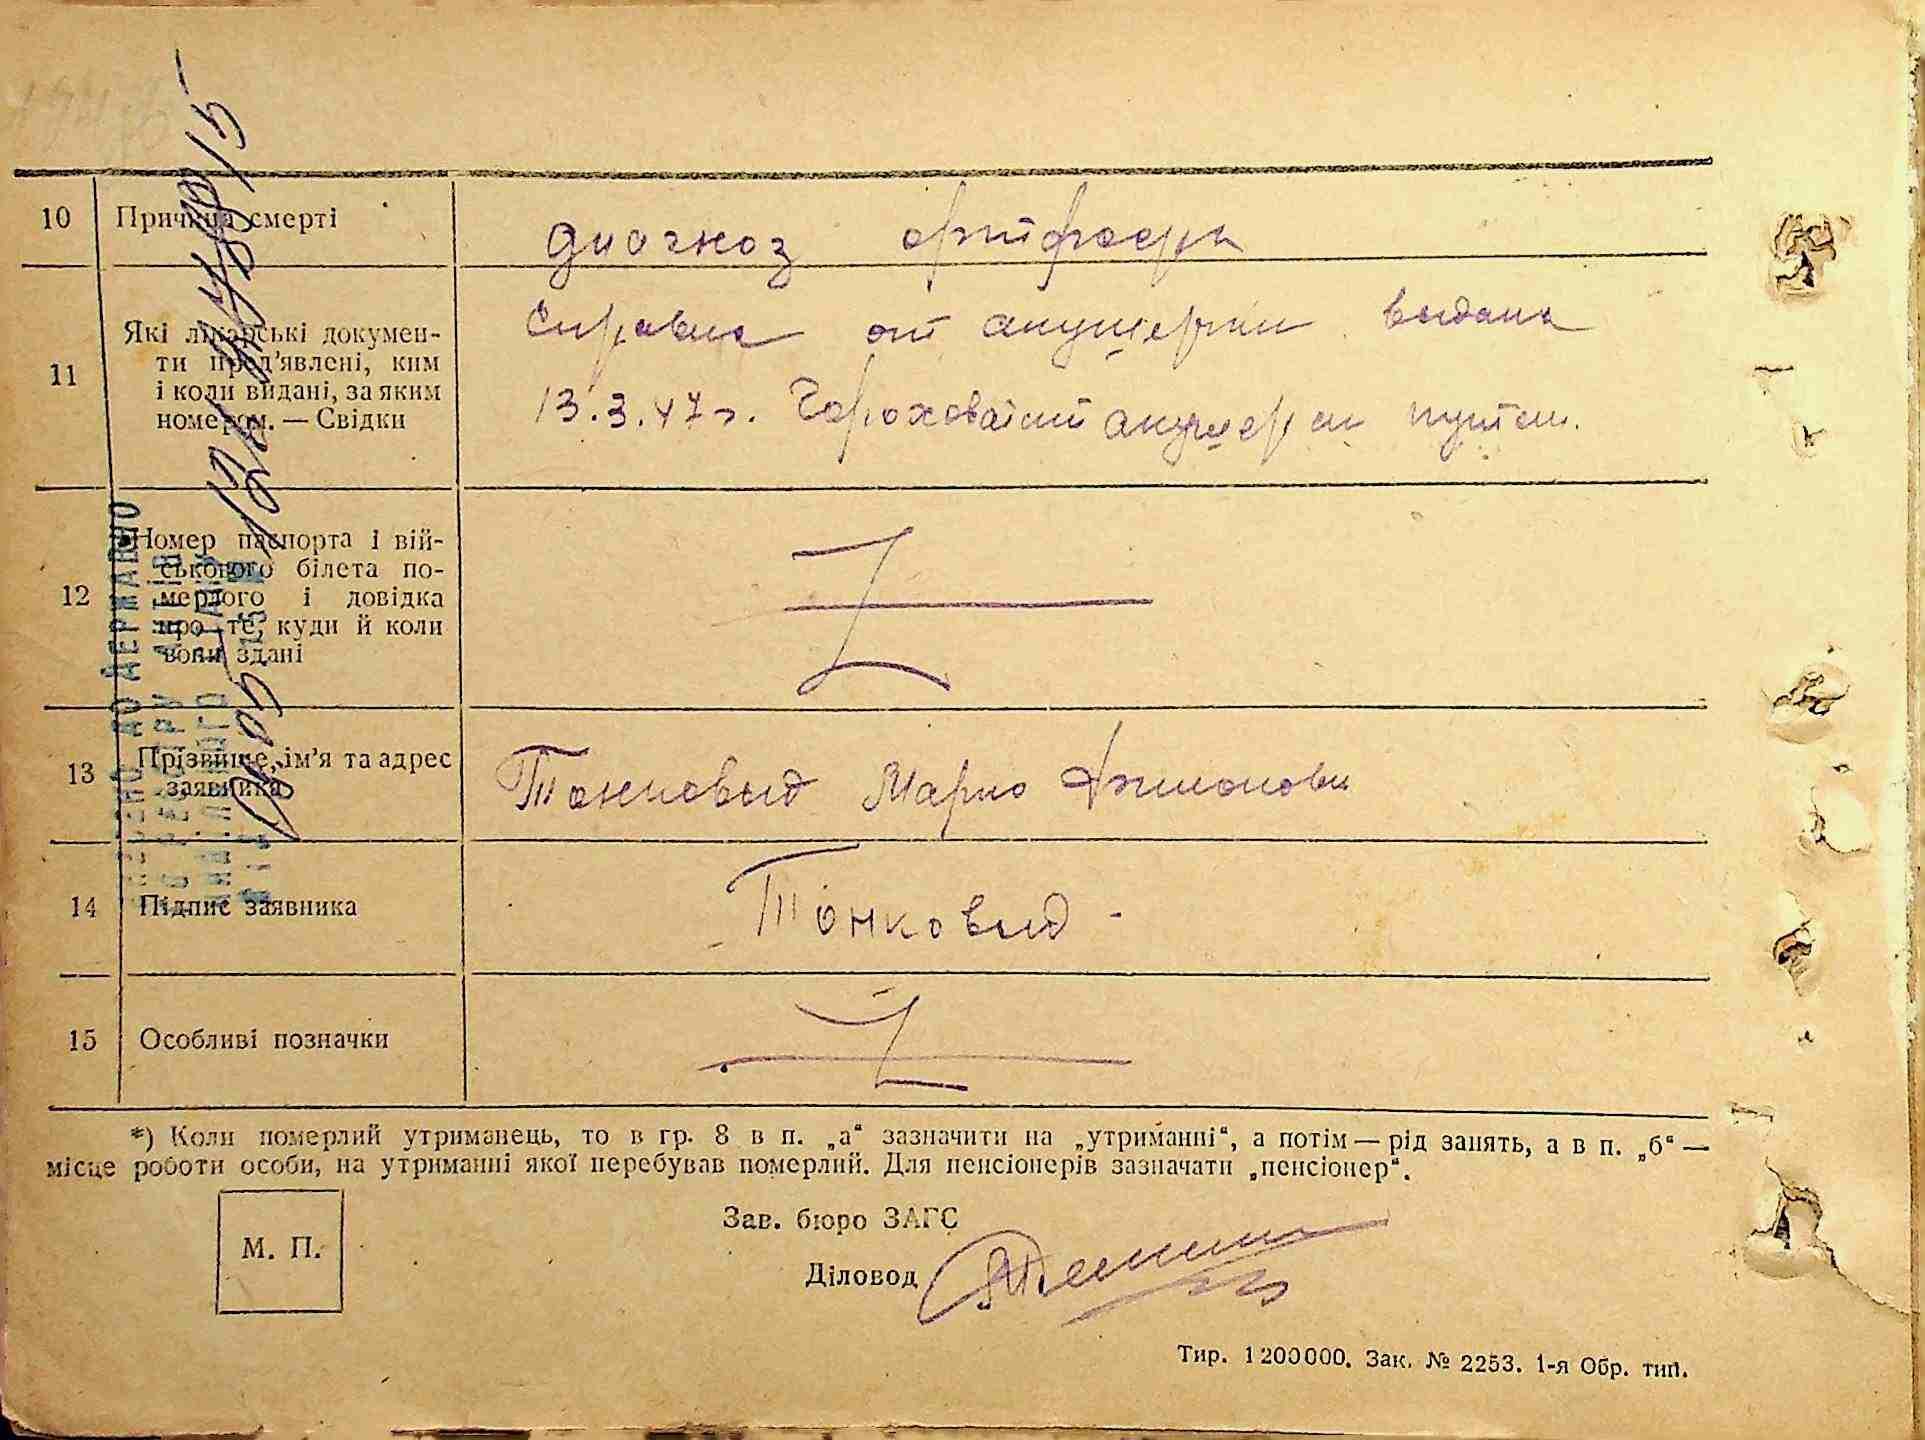 10 Причина смерті
диогноз
11 Які лікарські докумен-
ти пред'явлені, ким
і коли видані, за яким
номером. — Свідки
Справка от акушерки выдана
13.3.47 г. акушерск пунктом.
12 Номер паспорта і вій-
ськового білета по-
мерлого і довідка
про те, куди й коли
вони здані
13 Прізвище, ім'я та адрес
заявника
Тонковыд Марко
14 Підпис заявника
Тонковыд
15 Особливі позначки
*) Коли померлий утриманець, то в гр. 8 в п. „а“ зазначити на „утриманні“, а потім — рід занять, а в п. „б“ —
місце роботи особи, на утриманні якої перебував померлий. Для пенсіонерів зазначати „пенсіонер“.
М. П.
Зав. бюро ЗАГС
Діловод
Тир. 1200000. Зак. № 2253. 1-я Обр. тип.